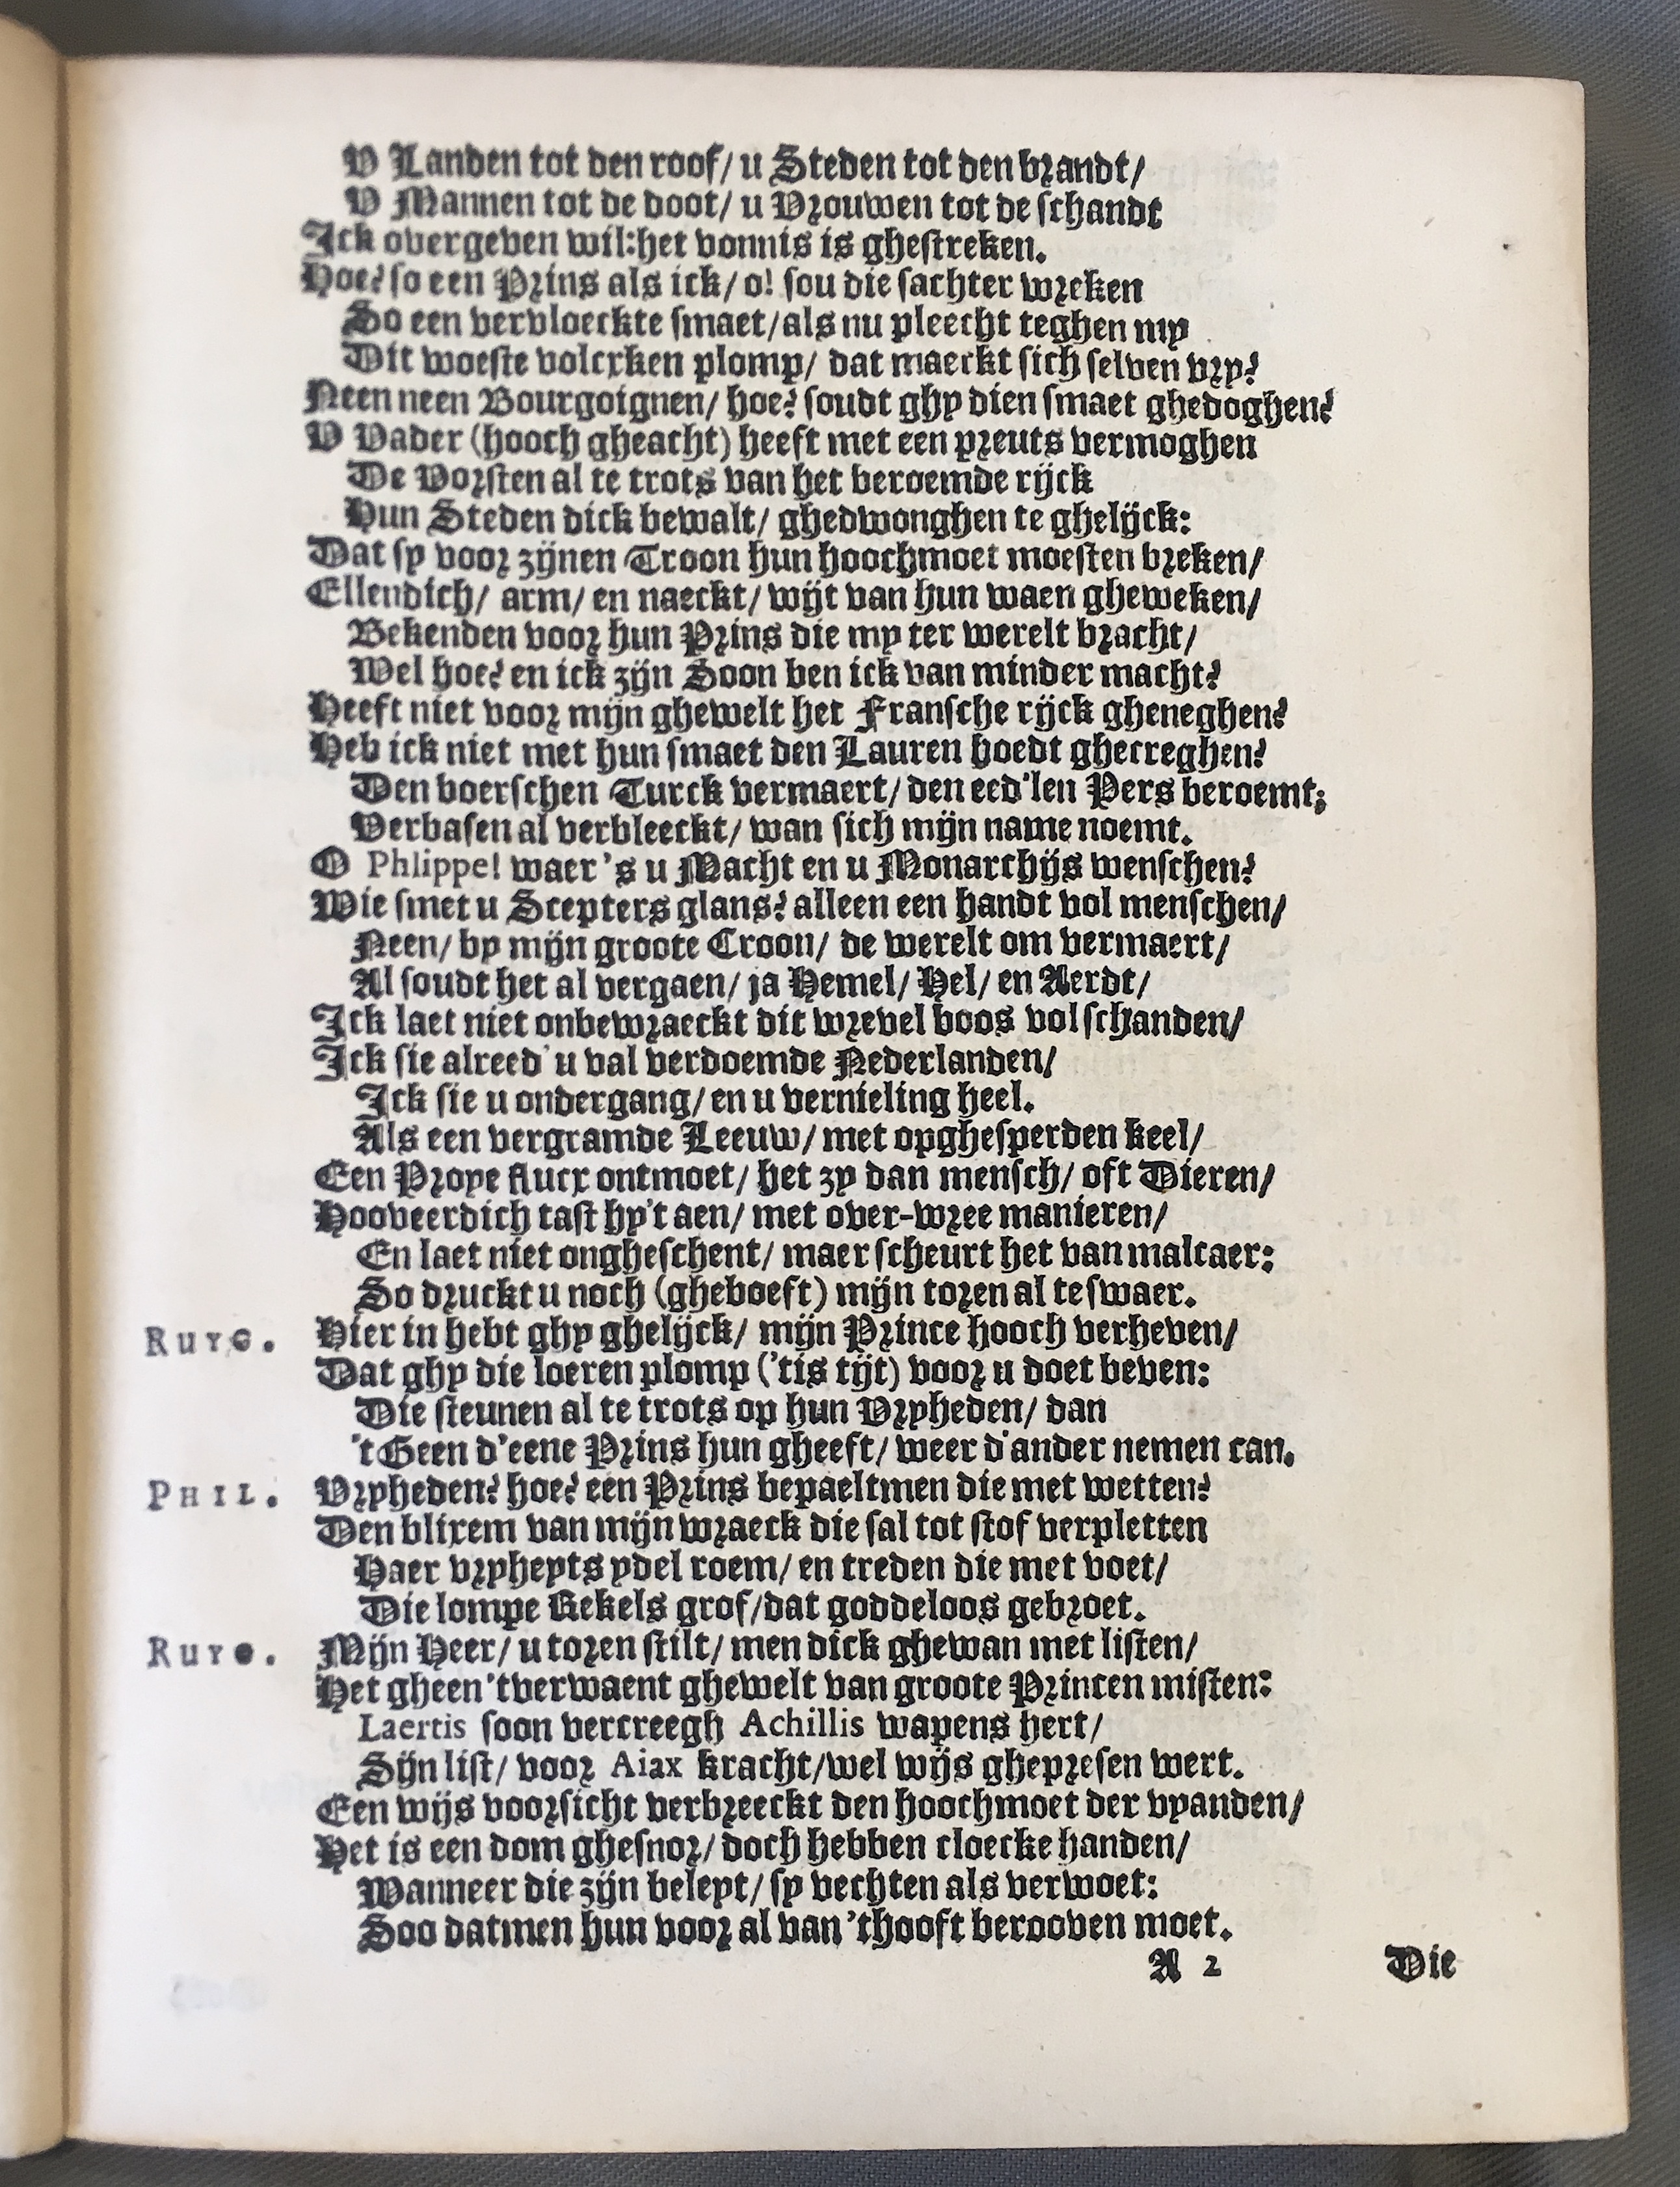 V Landen tot den roof/ u Steden tot den brandt/
V Mannen tot de doot/ u Vrouwen tot de schandt
Ick overgeven wil: het vonnis is ghestreken.
Hoe? so een Prins als ick/ o! sou die sachter wreken
So een vervloeckte smaet/ als nu pleecht teghen my
Dit woeste volcxken plomp/ dat maeckt sich selven vry?
Neen neen Bourgoignen/ hoe? soudt ghy dien smaet ghedoghen?
V Vader (hooch gheacht) heeft met een preuts vermoghen
De Vorsten al te trots van het beroemde rijck
Hun Steden dick bewalt/ ghedwonghen te ghelijck:
Dat sy voor zijnen Troon hun hoochmoet moesten breken/
Ellendich/ arm/ en naeckt/ wijt van hun waen gheweken/
Bekenden voor hun Prins die my ter werelt bracht/
Wel hoe? en ick zijn Soon ben ick van minder macht?
Heeft niet voor mijn ghewelt het Fransche rijck gheneghen?
Heb ick niet met hun smaet den Lauren hoedt ghecreghen?
Den boerschen Turck vermaert/ den eed'len Pers beroemt;
Verbasen al verbleeckt/ wan sich mijn name noemt.
O Phlippe! waer's u Macht en u Monarchijs wenschen?
Wie smet u Scepters glans? alleen een handt vol menschen/
Neen/ by mijn groote Croon/ de werelt om vermaert/
Al soudt het al vergaen/ ja Hemel/ Hel/ en Aerdt/
Ick laet niet onbewraeckt dit wrevel boos vol schanden/
Ick sie alreed' u val verdoemde Nederlanden/
Ick sie u ondergang/ en u vernieling heel.
Als een vergramde Leeuw/ met opghesperden keel/
Een Proye flucx ontmoet/ het zy dan mensch/ oft Dieren/
Hooveerdich tast hy't aen/ met over-wree manieren/
En laet niet ongheschent/ maer scheurt het van malcaer:
So druckt u noch (gheboeft) mijn toren al te swaer.
RUYG. Hier in hebt ghy ghelijck/ mijn Prince hooch verheven/
Dat ghy die loeren plomp ('tis tijt) voor u doet beven:
Die steunen al te trots op hun Vryheden/ dan
't Geen d'eene Prins hun gheeft/ weer d'ander nemen can.
PHIL. Vryheden? hoe? een Prins bepaeltmen die met wetten?
Den blixem van mijn wraeck die sal tot stof verpletten
Haer vryheyts ydel roem/ en treden die met voet/
Die lompe Rekels grof/ dat goddeloos gebroet.
RUYG. Mijn Heer/ u toren stilt/ men dick ghewan met listen/
Het gheen 'tverwaent ghewelt van groote Princen misten:
Laertis soon vercreegh Achillis wapens hert/
Sijn list/ voor Aiax kracht/ wel wijs ghepresen wert.
Een wijs voorsicht verbreeckt den hoochmoet der vyanden/
Het is een dom ghesnor/ doch hebben cloecke handen/
Wanneer die zijn beleyt/ sy vechten als verwoet:
Soo datmen hun voor al van 'thooft berooven moet.
A 2 Die